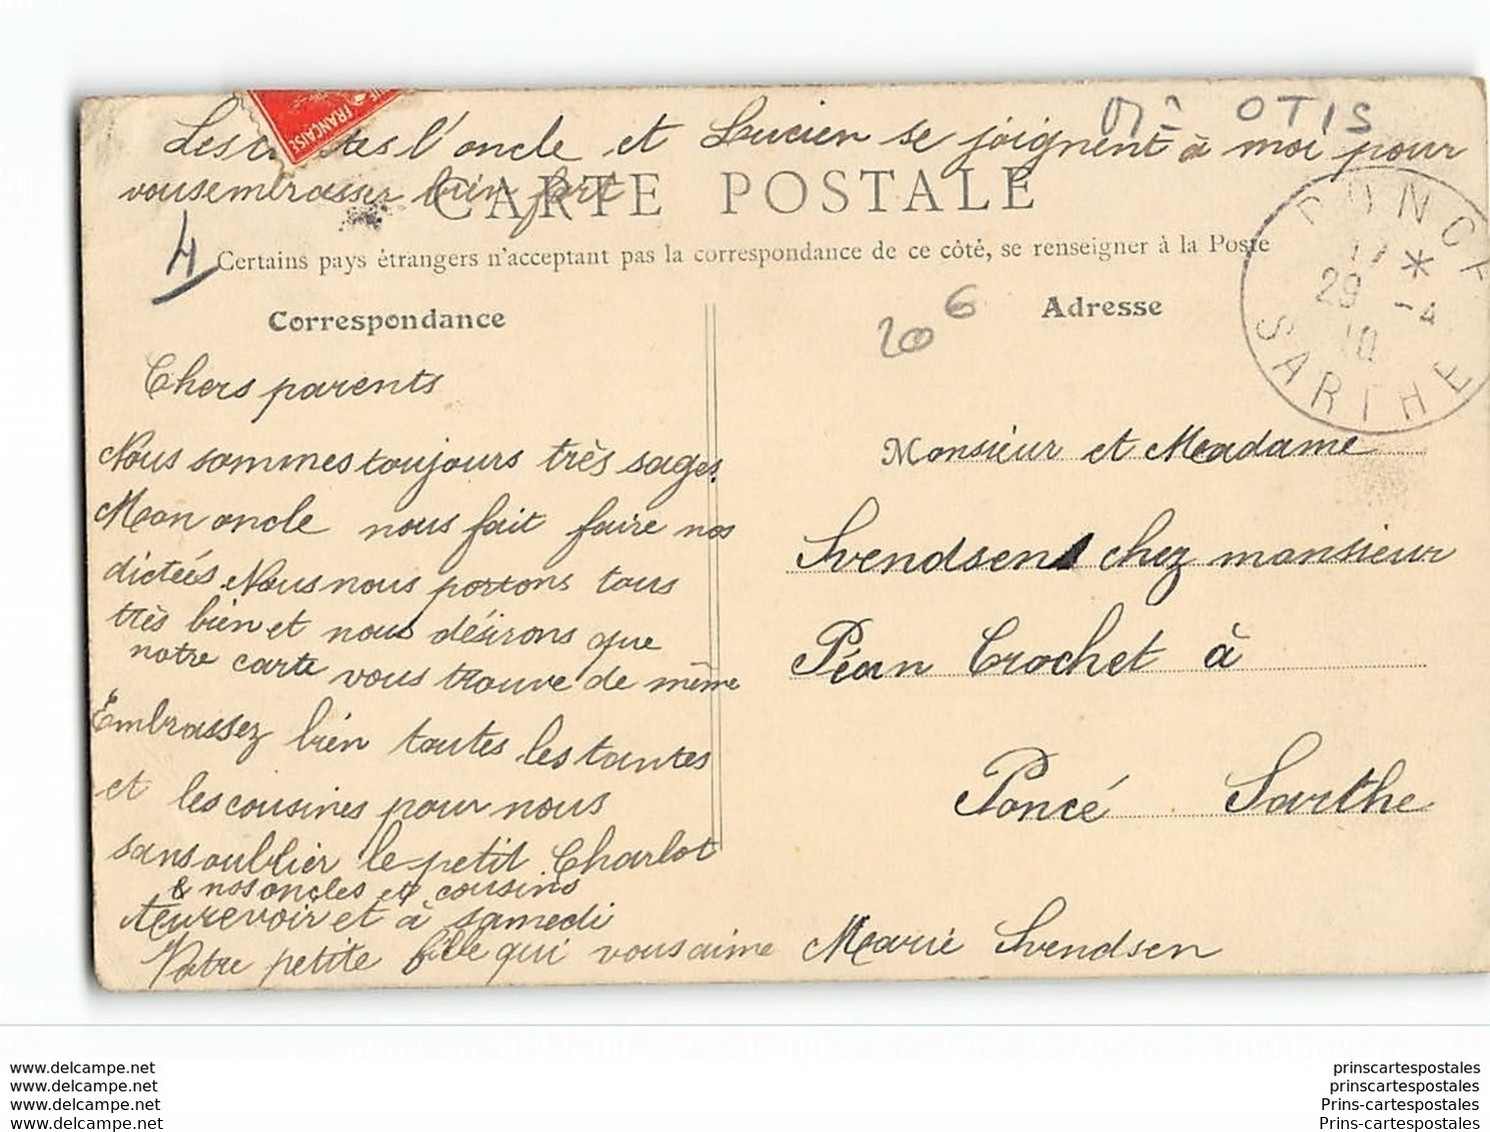 Mn OTIS
FRANÇAISE
l'oncle et Lucien se joignent à moi pour
vous embrasser bien fort
CARTE POSTALE
4
Certains pays étrangers n'acceptent pas la correspondance de ce côté, se renseigner à la Poste
PONCÉ
17 *
29 -4
10
SARTHE
20 6
Correspondance
Adresse
Chers parents
Nous sommes toujours très sages.
Mon oncle nous fait faire nos
dictées. Nous nous portons tous
très bien et nous désirons que
notre carte vous trouve de même
Embrassez bien toutes les tantes
et les cousines pour nous
sans oublier le petit Charlot
& nos oncles et cousins
Aurevoir et à samedi
Votre petite fille qui vous aime Marie Svendsen
Monsieur et Madame
Svendsen chez monsieur
Péan Crochet à
Poncé Sarthe
www.delcampe.net
www.delcampe.net
www.delcampe.net
www.delcampe.net
prinscartespostales
prinscartespostales
Prins-cartespostales
Prins-cartespostales